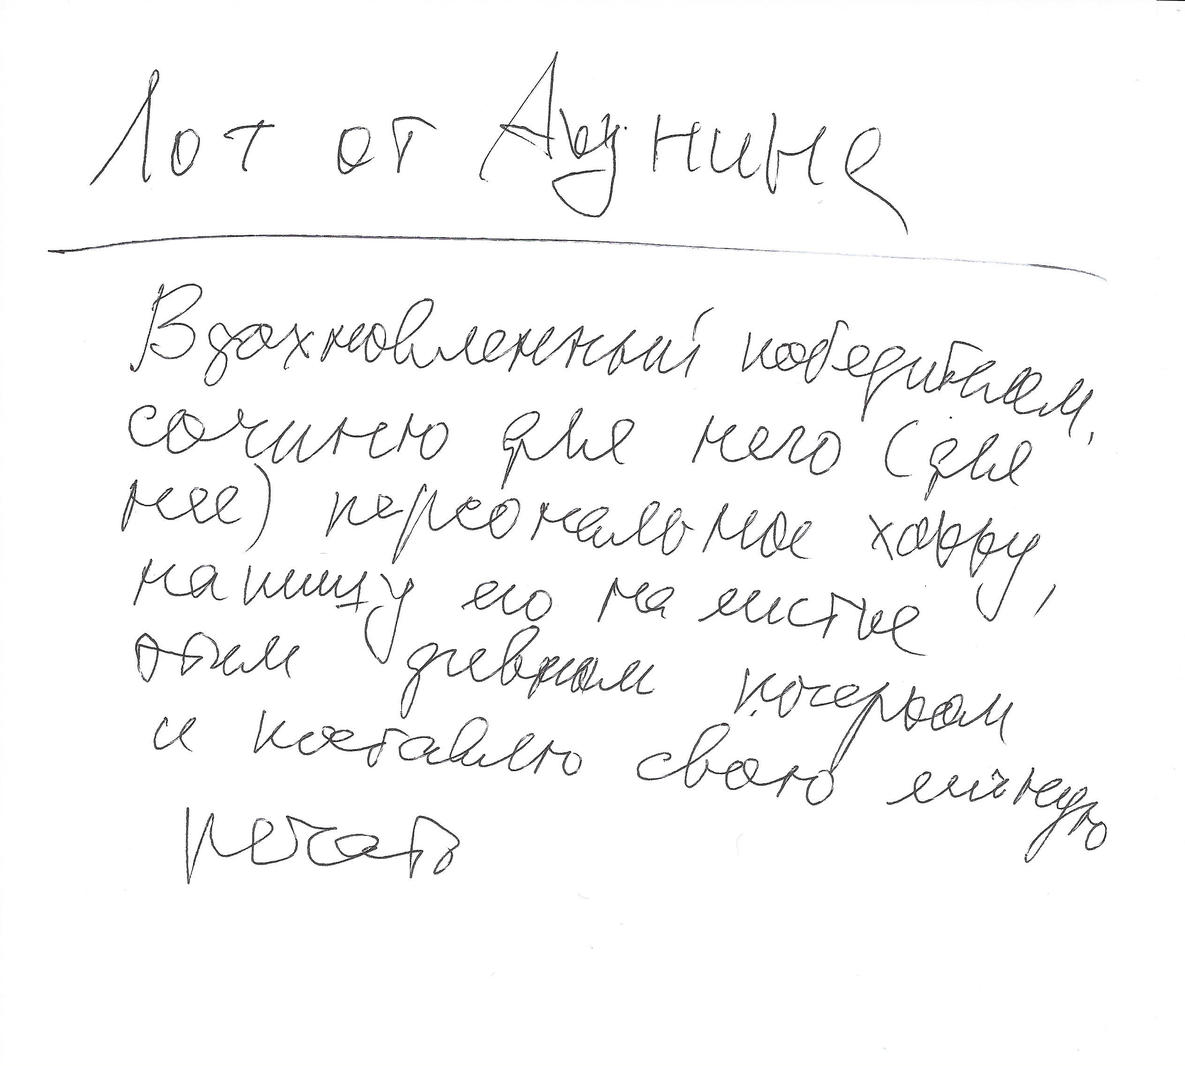 Лот от Акунина
Вдохновленный победителем,
сочиню для него (для
нее) персональное хокку,
напишу его на листке
этим дивным почерком
и поставлю свою личную
печать